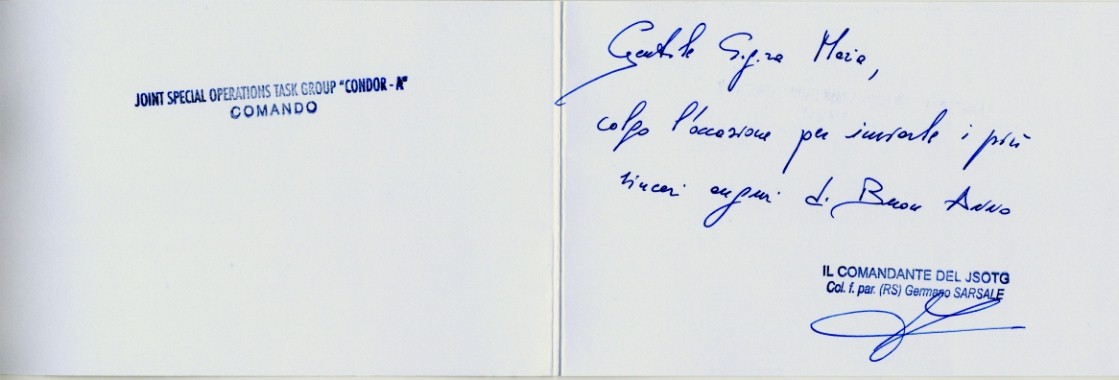 JOINT SPECIAL OPERATIONS TASK GROUP "CONDOR - A"
COMANDO
Gentile Sig.ra Maria,
colgo l'occasione per inviarle i più
sinceri auguri di Buon Anno
IL COMANDANTE DEL JSOTG
Col. f. par. (RS) Germano SARSALE